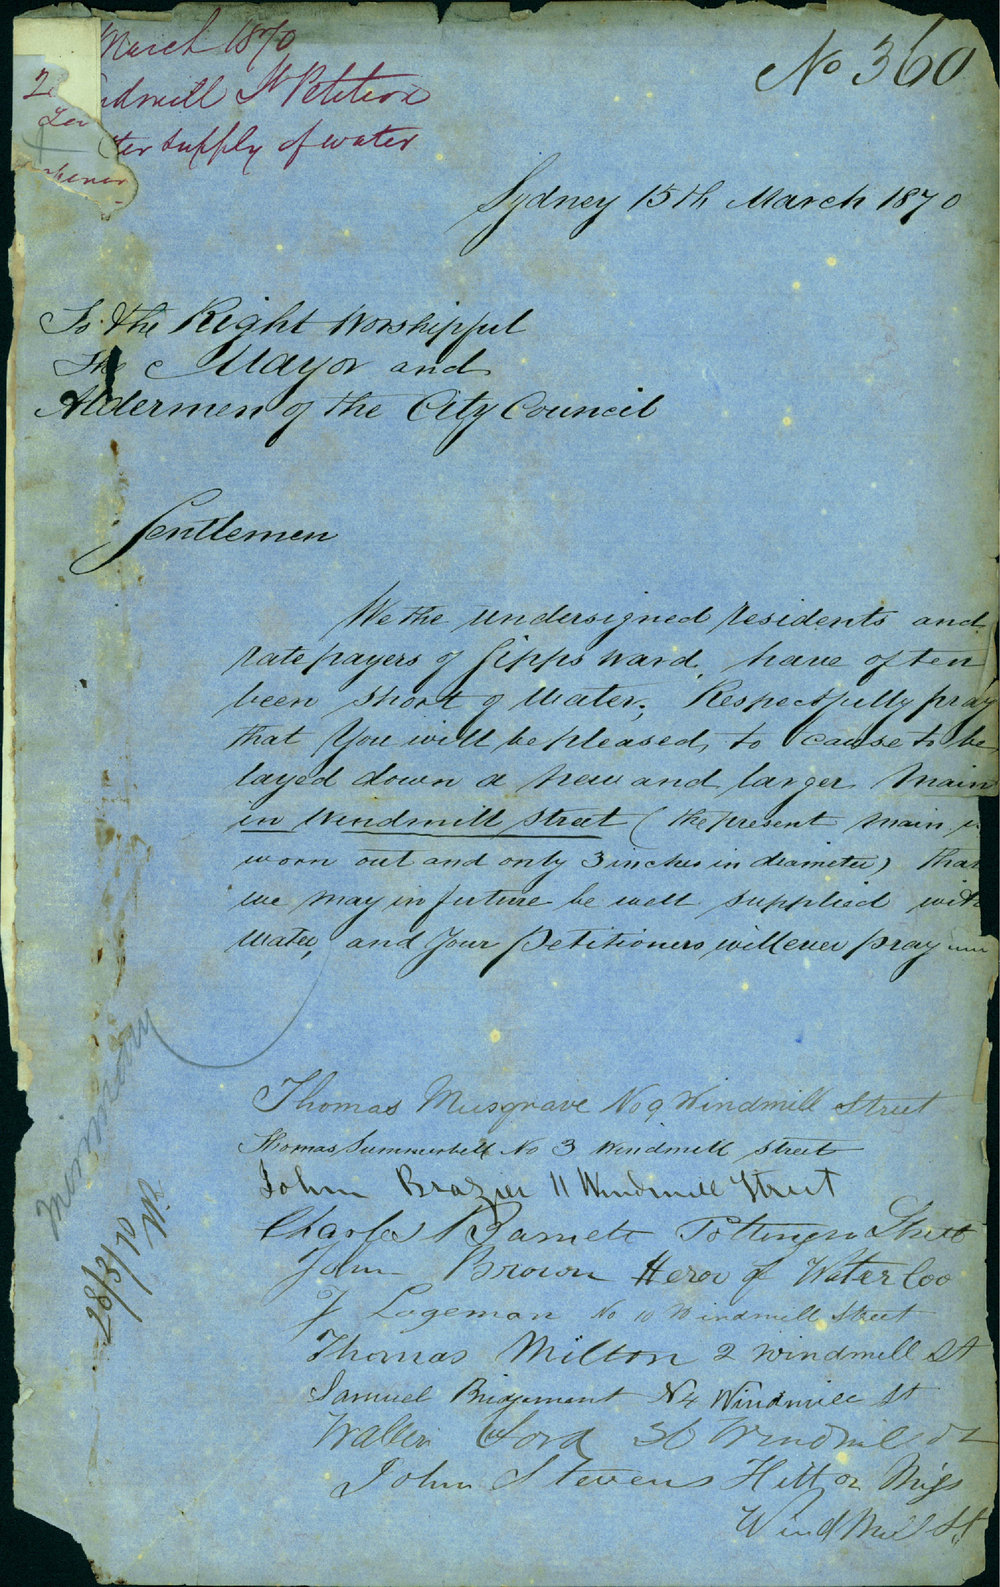 March 1870
No 360
ndmill St Petition
ter supply of water
Sydney 15th March 1870
To the Right Worshipful
The Mayor and
Aldermen of the City Council
Gentlemen
We the undersigned residents and
ratepayers of Gipps Ward, have often
been short of Water; Respectfully pray
that You will be pleased, to cause to be
layed down a new and larger Main
in Windmill Street (the present Main is
worn out and only 3 inches in diameter) that
we may in future be well supplied with
Water, and Your Petitioners will ever pray
Thomas Musgrave No 9 Windmill Street
Thomas Summerbell No 3 Windmill Street
John Brazier 11 Windmill Street
Charles Barnett Pottinger Street
John Brown Heroe of Waterloo
J Logeman No 10 Windmill Street
Thomas Milton 2 Windmill St
Samuel N 4 Windmill St
Ford 36 Windmill St
John Stevens Hitt or Miss
Wind Mill St
28/3/70